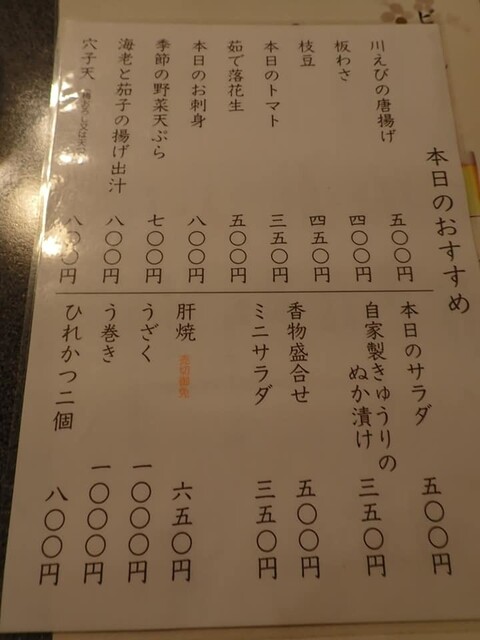 本日のおすすめ
川えびの唐揚げ 五〇〇円
板わさ 四〇〇円
枝豆 四五〇円
本日のトマト 三五〇円
茹で落花生 五〇〇円
本日のお刺身 八〇〇円
季節の野菜天ぷら 七〇〇円
海老と茄子の揚げ出汁 八〇〇円
穴子天 八〇〇円
本日のサラダ 五〇〇円
自家製きゅうりの
ぬか漬け 三五〇円
香物盛合せ 五〇〇円
ミニサラダ 三五〇円
肝焼 売切御免 六五〇円
うざく 一〇〇〇円
う巻き 一〇〇〇円
ひれかつ二個 八〇〇円
ビ